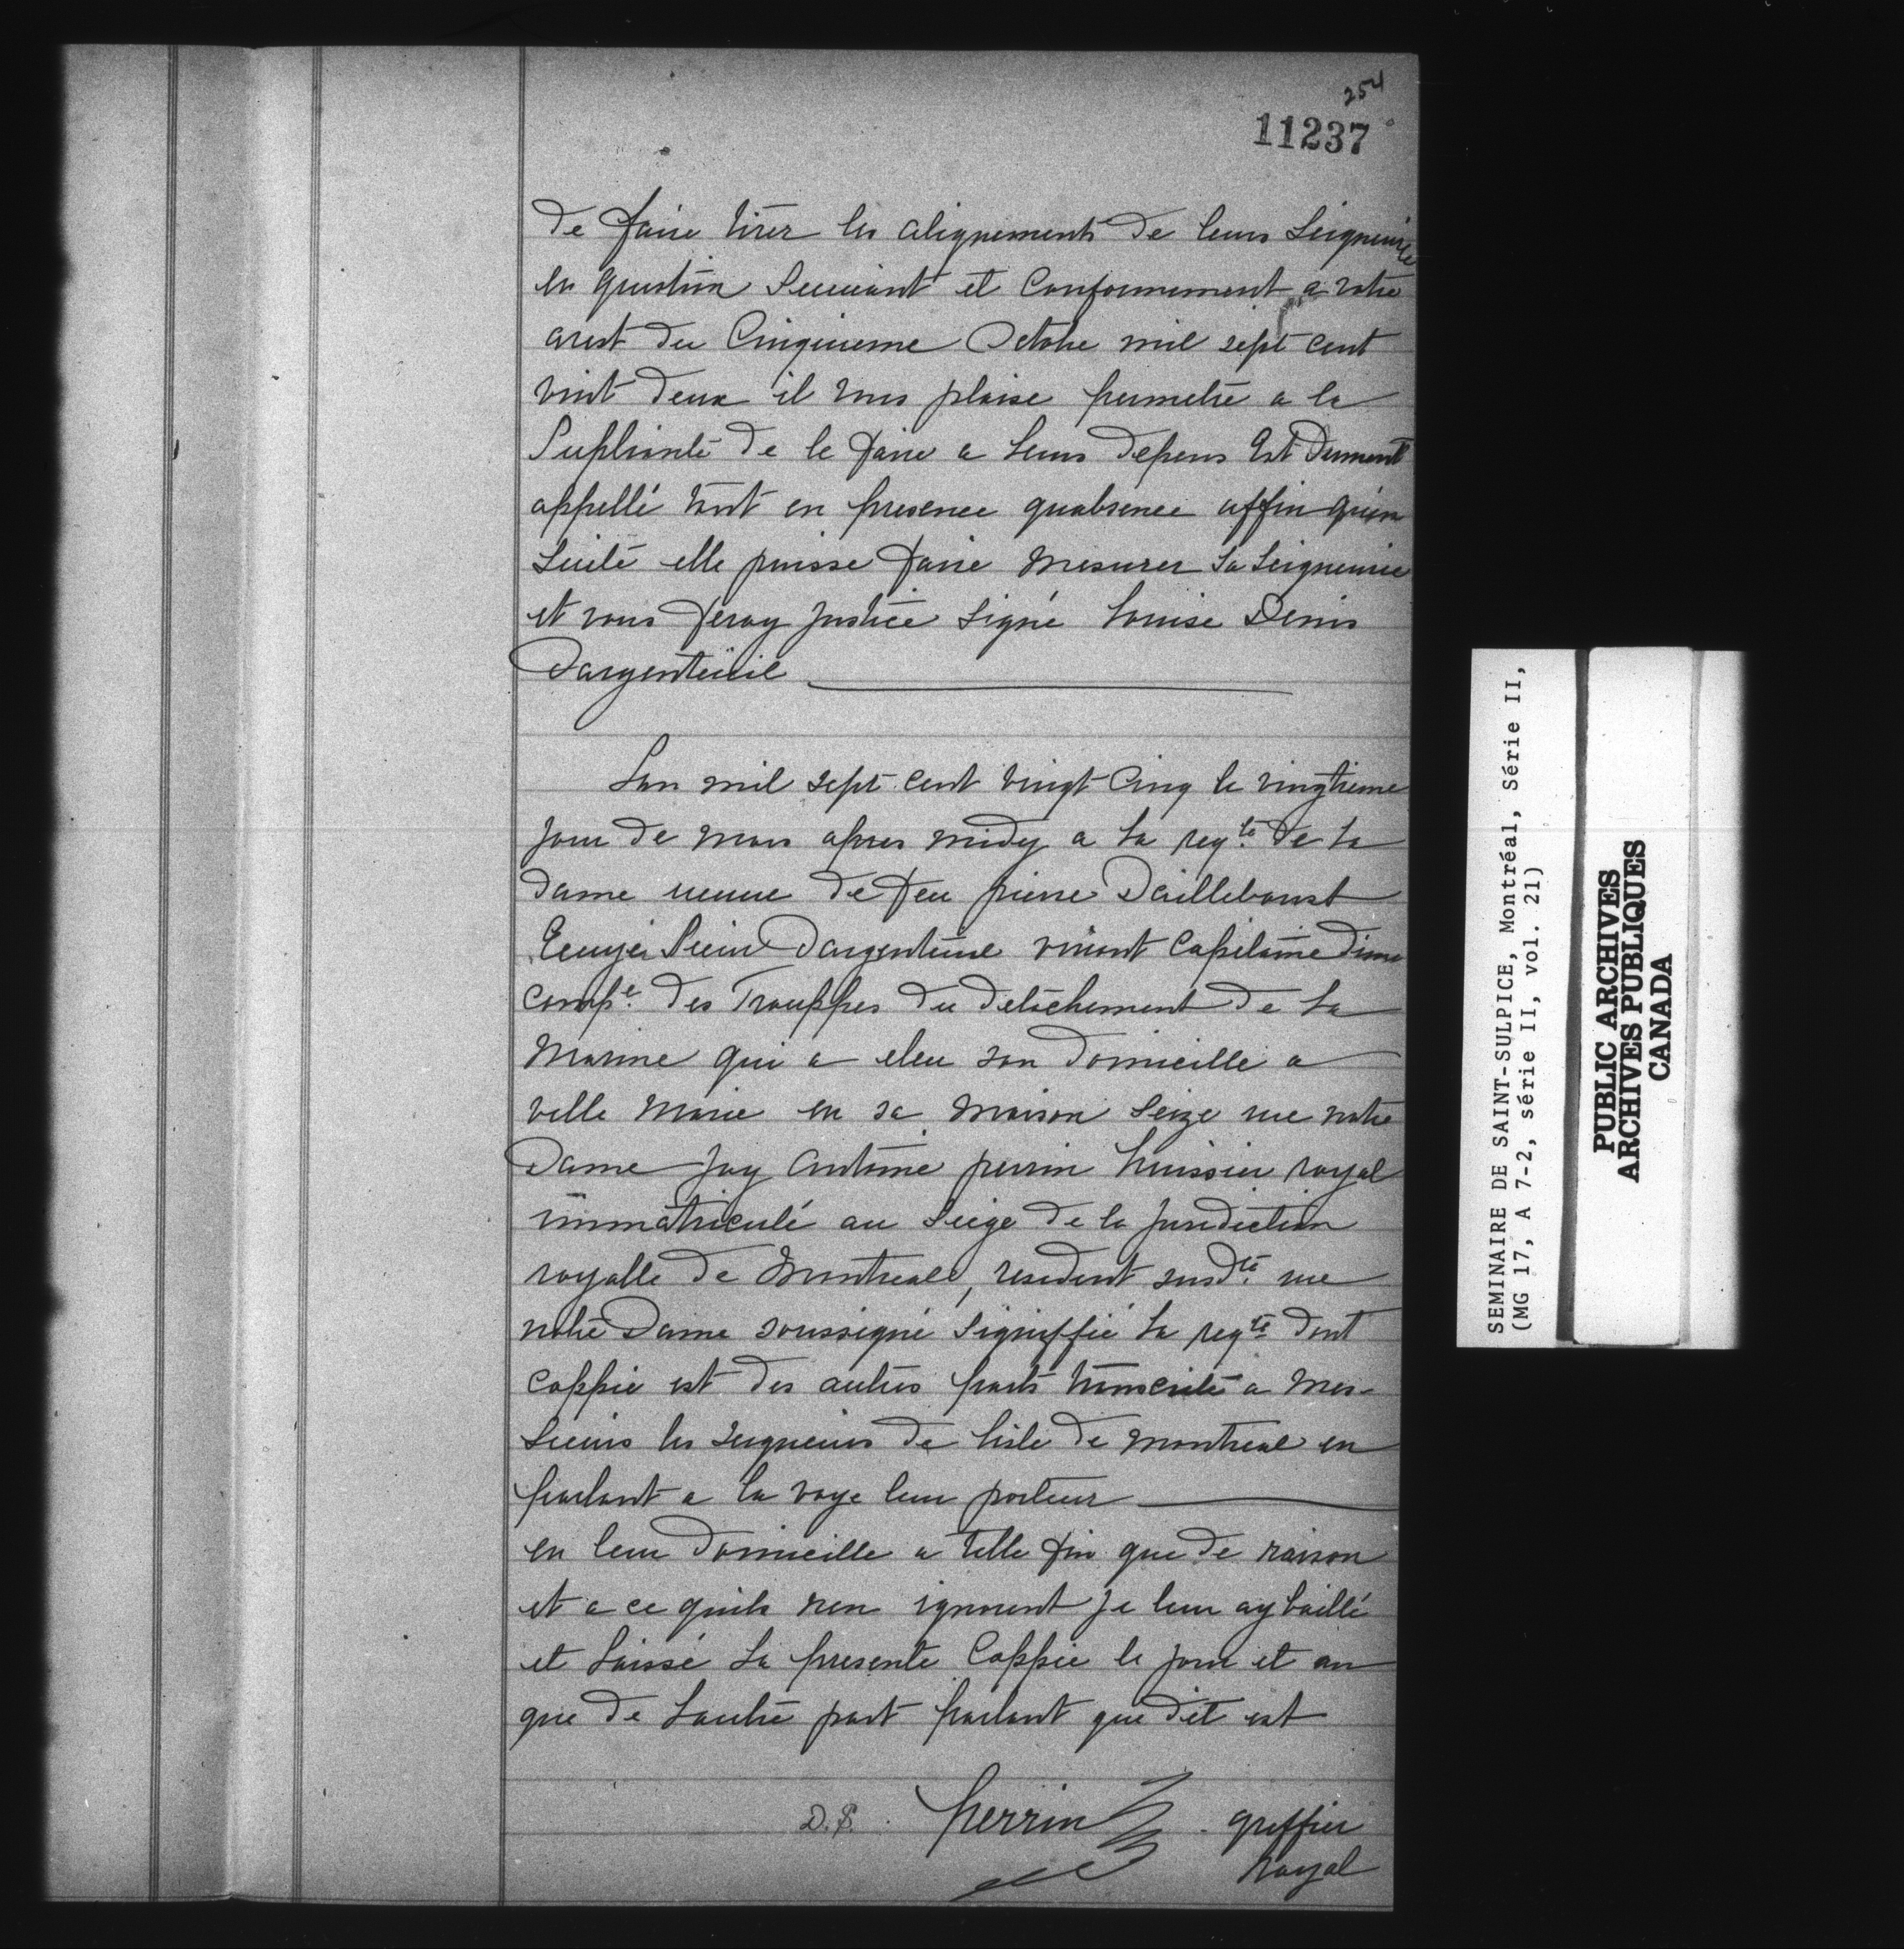 254
11237
de faire tirer les alignements de leurs Seigneurie
en question Suiuant et Conformement a votre
arest du Cinquieme Octobre mil sept cent
vint deux il vous plaise permetre a la
Supliante de le faire a leurs depens Est Dument
appellé tant en presence quabsence affin quen
Suite elle puisse faire Mesurer Sa Seigneurie
et vous feray Justice Signé Louise Denis
Dargenteüil
Lan mil sept cent vingt Cinq le vingtieme
Jour de mars apres midy a La reqte. de La
dame ueuue de feu pierre Dailleboust
Ecuyer Sieur Dargenteuil viuant Capitaine dune
compe. des Trouppes du detachement de La
Marine qui a eleu son domicille a
ville Marie en sa Maison Seize rue notre
Dame Jay Antoine perrin huissier royal
immatriculé au Siege de la Jurediction
royalle de Montreal, resident susdte. rue
notre Dame soussigné Signiffié La reqte. dont
Coppie est des autres parts transcrite a Mes-
Sieurs les seigneurs de lisle de Montreal en
parlant a La voye leur porteur
en leur domicille a telle fin que de raison
et a ce quils nen ignorent Je leur ay baillé
et Laissé La presente Coppie le jour et an
que de Lautre part parlant que dit est
D.S. perrin greffier
royal
SEMINAIRE DE SAINT-SULPICE, Montréal, Série II,
(MG 17, A 7-2, série II, vol. 21)
PUBLIC ARCHIVES
ARCHIVES PUBLIQUES
CANADA